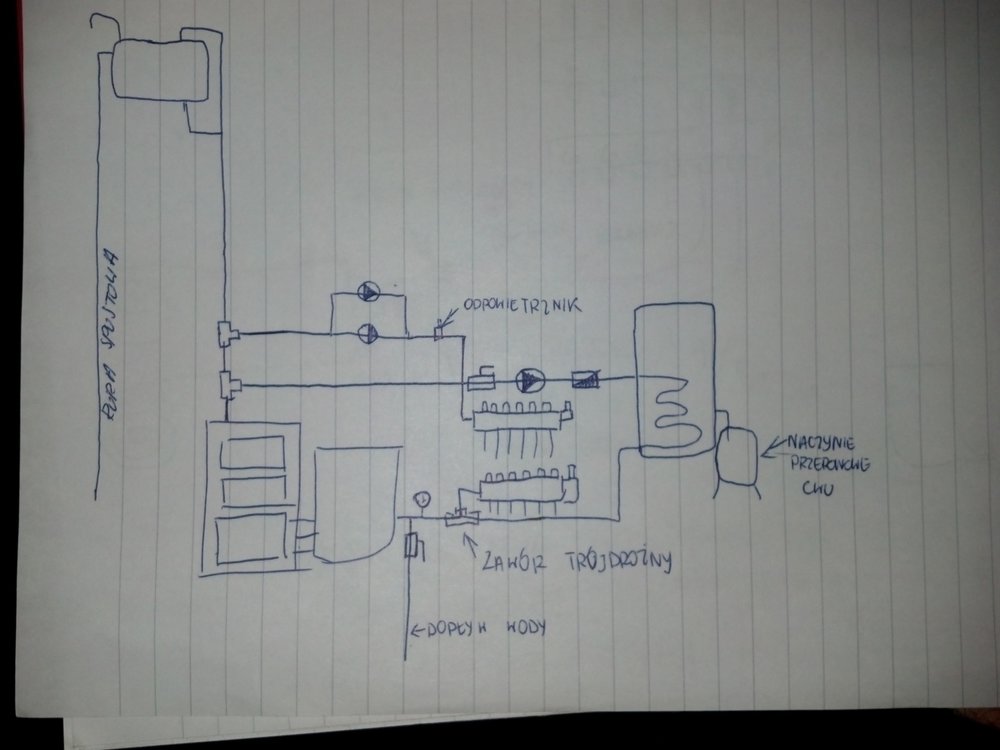 RURA SPUSTOWA
ODPOWIETRZNIK
NACZYNIE
PRZEPONOWE
CWU
ZAWÓR TRÓJDROŻNY
DOPŁYW WODY